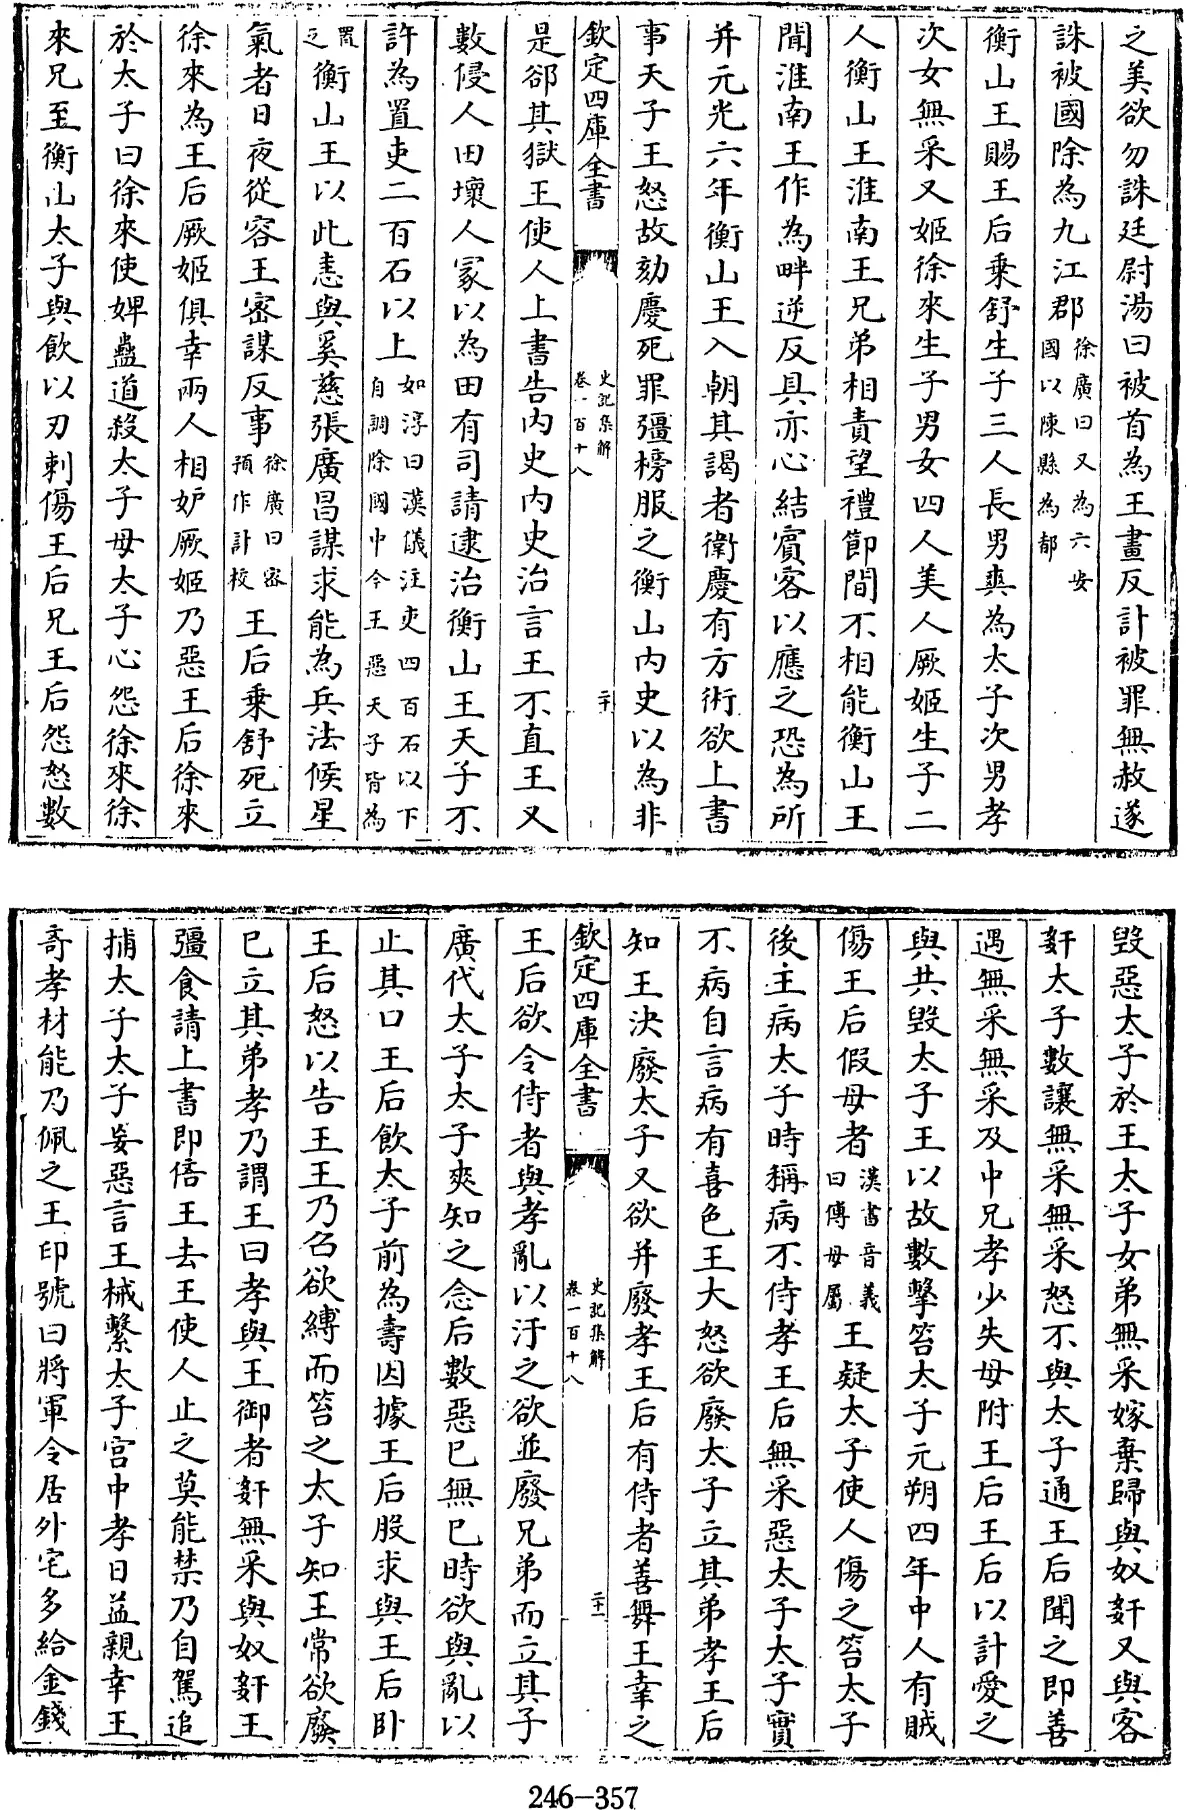 之美欲勿誅廷尉湯曰被首為王畫反計被罪無赦遂
誅被國除為九江郡徐廣曰又為六安國以陳縣為都
衡山王賜王后乘舒生子三人長男爽為太子次男孝
次女無采又姬徐來生子男女四人美人厥姬生子二
人衡山王淮南王兄弟相責望禮節間不相能衡山王
聞淮南王作為畔逆反具亦心結賔客以應之恐為所
并元光六年衡山王入朝其謁者衛慶有方術欲上書
事天子王怒故劾慶死罪彊榜服之衡山內史以為非
欽定四庫全書
史記集解
卷一百十八
二十
是卻其獄王使人上書告內史內史治言王不直王又
數侵人田壞人冢以為田有司請逮治衡山王天子不
許為置吏二百石以上如淳曰漢儀注吏四百石以下自調除國中今王惡天子皆為
置之衡山王以此恚與奚慈張廣昌謀求能為兵法候星
氣者日夜從容王密謀反事徐廣曰密預作計校王后乘舒死立
徐來為王后厥姬俱幸兩人相妒厥姬乃惡王后徐來
於太子曰徐來使婢蠱道殺太子母太子心怨徐來徐
來兄至衡山太子與飲以刃刺傷王后兄王后怨怒數
毀惡太子於王太子女弟無采嫁棄歸與奴姧又與客
姧太子數讓無采無采怒不與太子通王后聞之即善
遇無采無采及中兄孝少失母附王后王后以計愛之
與共毀太子王以故數擊笞太子元朔四年中人有賊
傷王后假母者漢書音義曰傅母屬王疑太子使人傷之笞太子
後主病太子時稱病不侍孝王后無采惡太子太子實
不病自言病有喜色王大怒欲廢太子立其弟孝王后
知王決廢太子又欲并廢孝王后有侍者善舞王幸之
欽定四庫全書
史記集解
卷一百十八
二十一
王后欲令侍者與孝亂以汙之欲並廢兄弟而立其子
廣代太子太子爽知之念后數惡已無已時欲與亂以
止其口王后飲太子前為壽因據王后股求與王后卧
王后怒以告王王乃召欲縛而笞之太子知王常欲廢
已立其弟孝乃謂王曰孝與王御者姧無采與奴姧王
彊食請上書即倍王去王使人止之莫能禁乃自駕追
捕太子太子妄惡言王械繫太子宫中孝日益親幸王
竒孝材能乃佩之王印號曰將軍令居外宅多給金錢
246-357